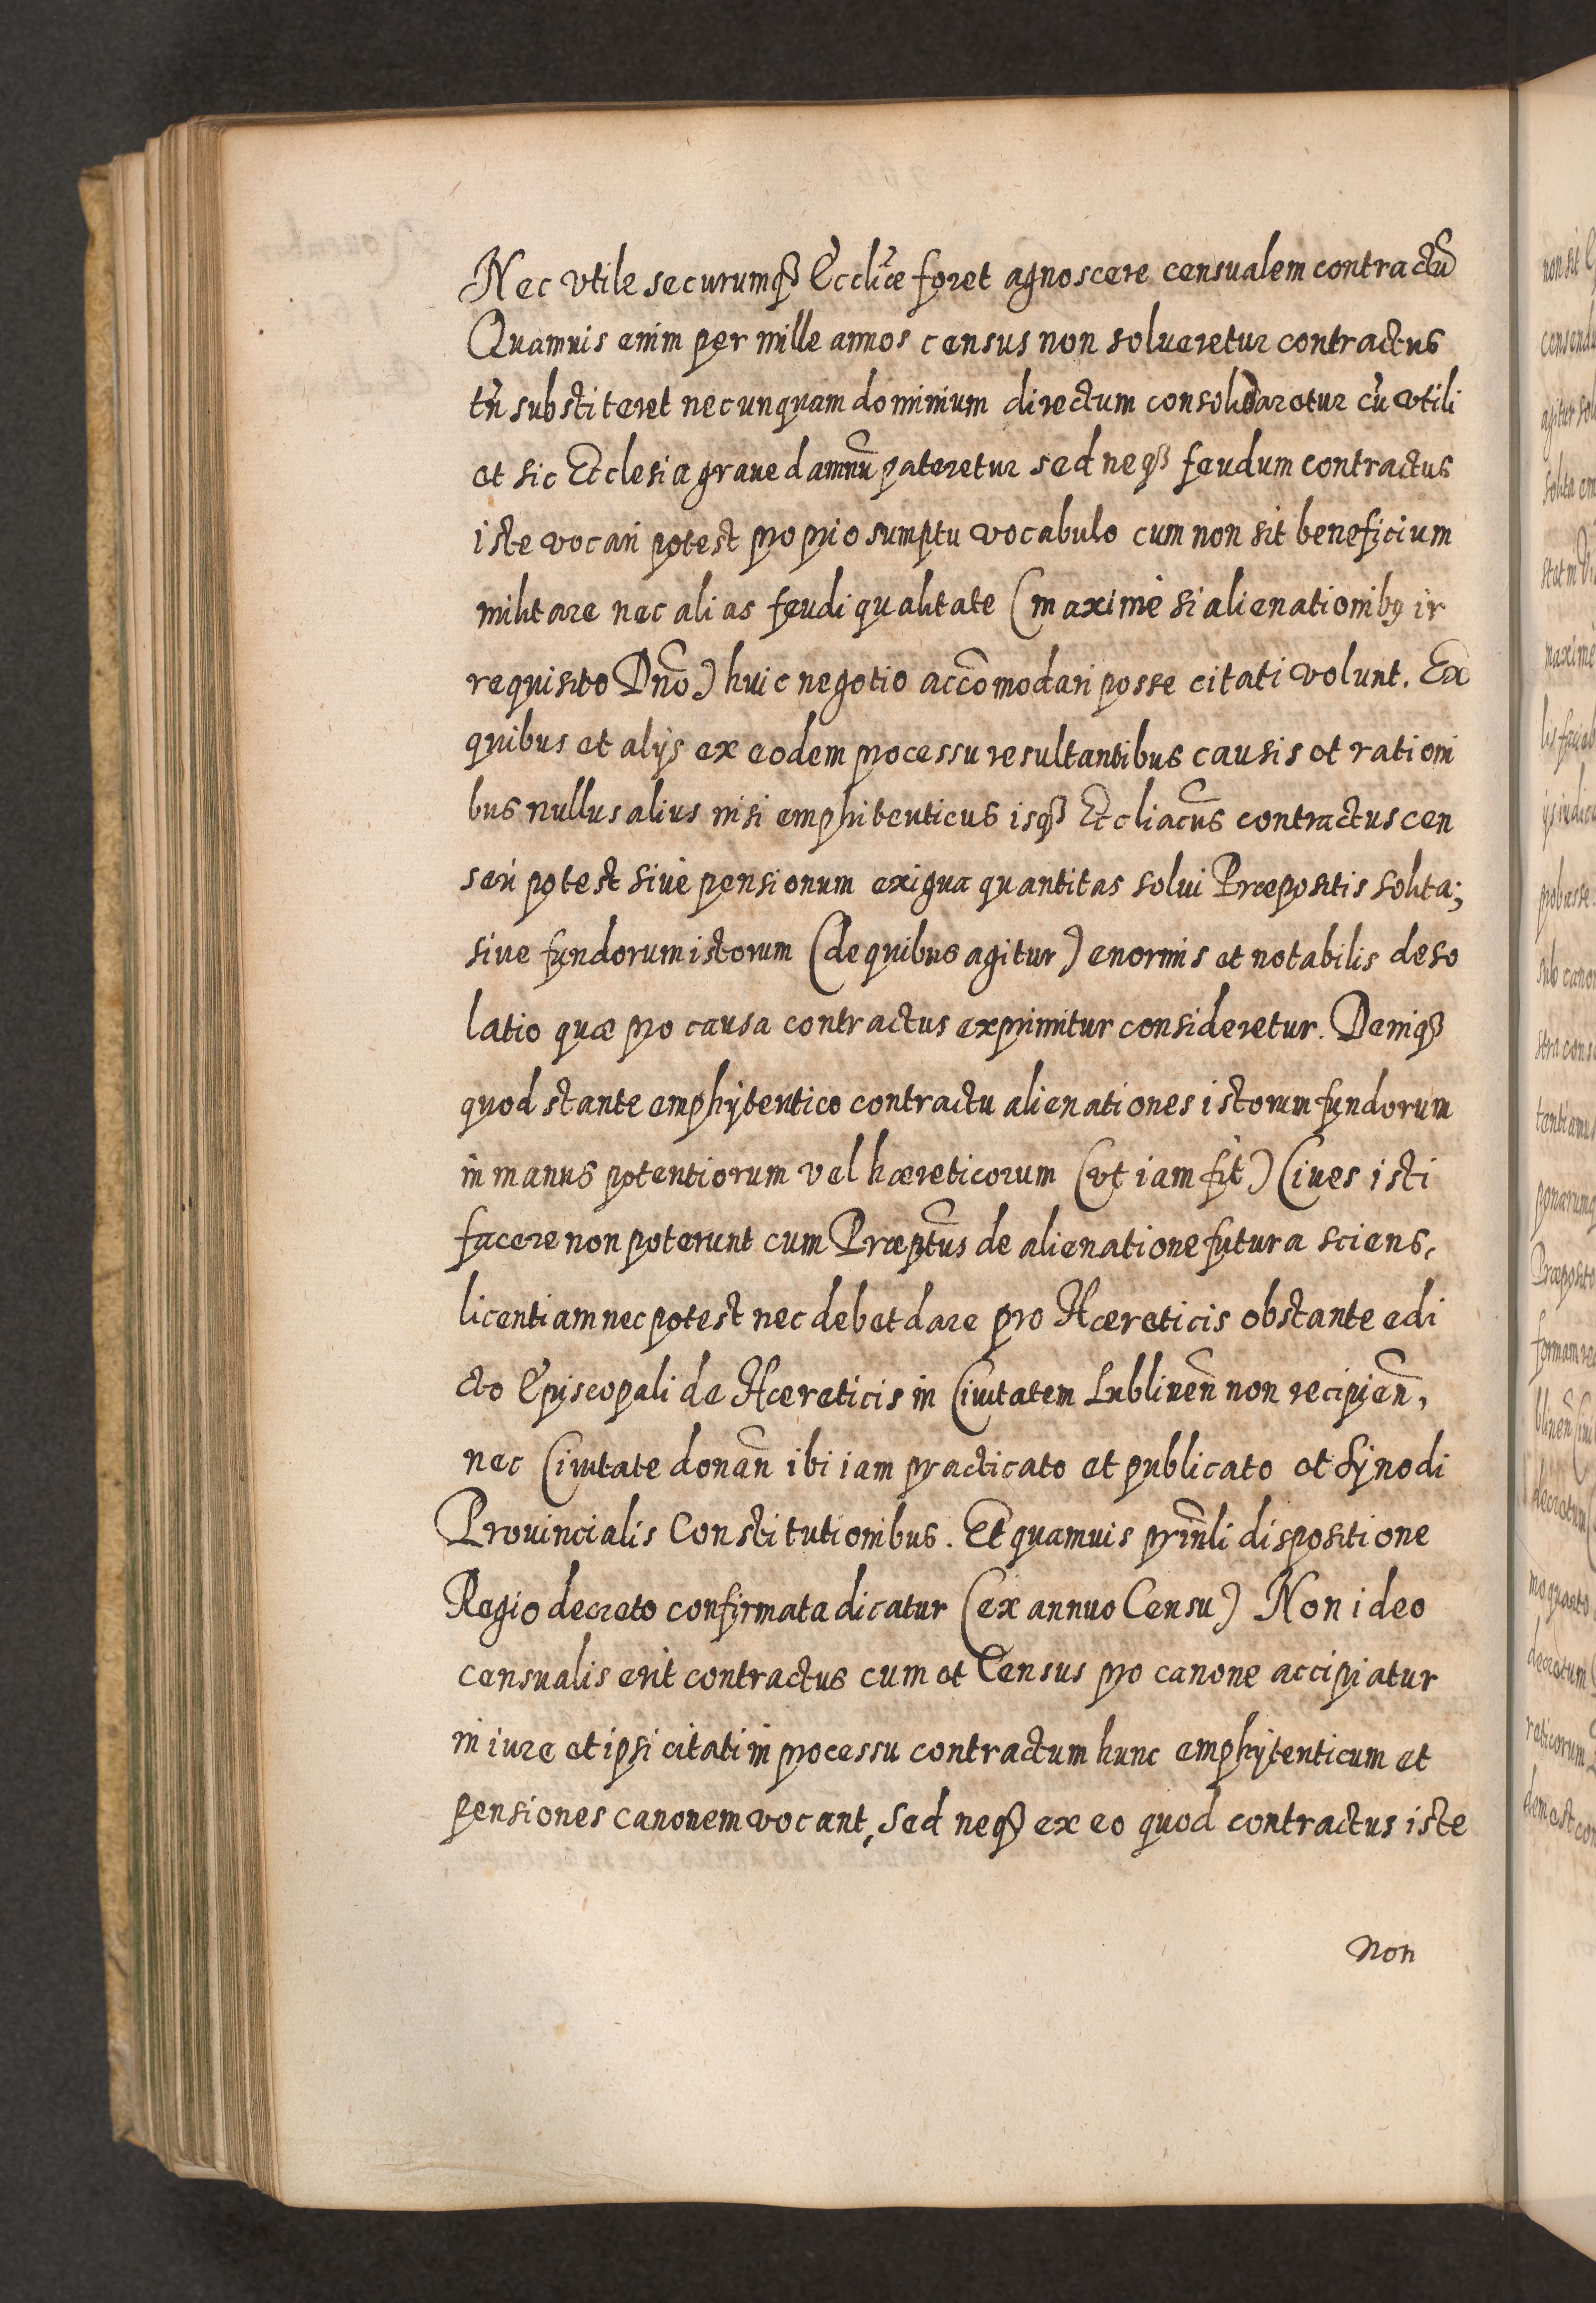 Nec vtile securumqꝫ Eccli̅æ foret agnoscere censualem contractu̅
Quamuis enim per mille annos census non solueretur contractus
tn̅ substiteret nec unquam dominium directum consolidaretur cu̅ vtili
et sic Ecclesia graue damnu̅ pateretur sed neqꝫ feudum contractus
iste vocari potest proprio sumptu vocabulo cum non sit beneficium
militare nec alias feudi qualitate (maximè si alienationibꝰ ir
requisito Dn̅o) huic negotio acco̅modari posse citati volunt. Ex
quibus et alijs ex eodem processu resultantibus causis et rationi
bus nullus alius nisi emphiteuticus isqꝫ Eccliacu̅s contractus cen
seri potest siuè pensionum exigua quantitas solui Præpositis solita;
siue fundorum istorum (de quibus agitur) enormis et notabilis deso
latio quæ pro causa contractus exprimitur consideretur. Deniqꝫ
quod stante emphÿteutico contractu alienationes istorum fundorum
in manus potentiorum vel hæreticorum (vt iam fit) Ciues isti
facere non poterunt cum Præpt̅us de alienatione futura sciens,
licentiam nec potest nec debet dare pro Hæreticis obstante edi
cto Episcopali de Hæreticis in Ciuitatem Lublinen̅ non recipien̅,
nec Ciuitate donan̅ ibi iam practicato et publicato et Sÿnodi
Prouincialis Constitutionibus. Et quamuis prin̅li dispositione
Regio decreto confirmata dicatur (ex annuo Censu) Non ideo
censualis erit contractus cum et Census pro canone accipiatur
in iure et ipsi citati in processu contractum hunc emphÿteuticum et
pensiones canonem vocant, Sed neqꝫ ex eo quod contractus iste
Non